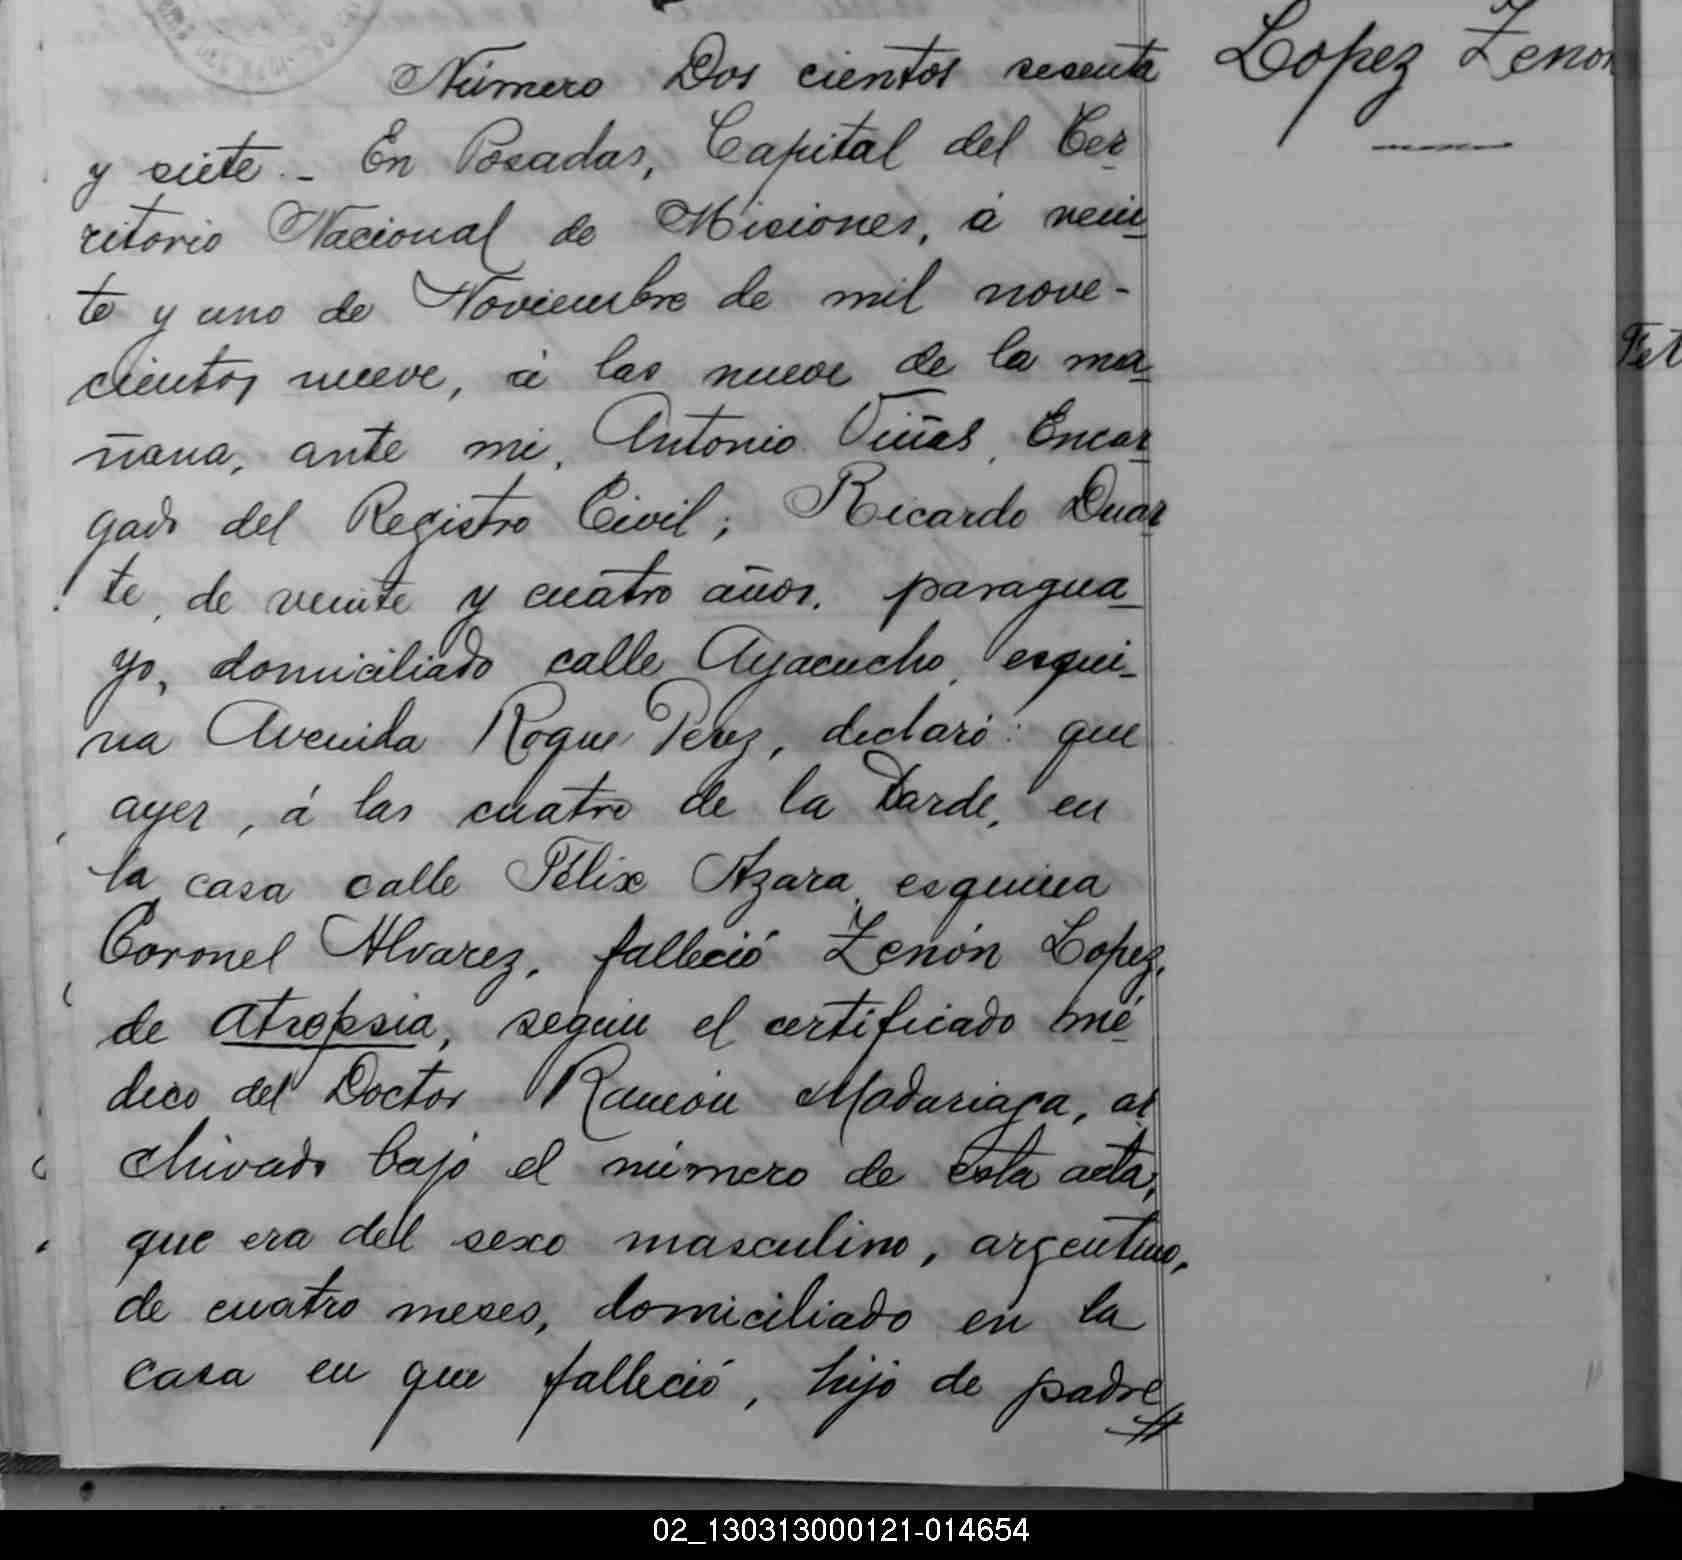 Número Dos cientos sesenta
y siete._ En Posadas, Capital del Ter
ritorio Nacional de Misiones, á vein
te y uno de Noviembre de mil nove-
cientos nueve, á las nueve de la ma
ñana, ante mi, Antonio Viñas, Encar
gado del Registro Civil; Ricardo Duar
te, de veinte y cuatro años, paragua
yo, domiciliado calle Ayacucho, esqui-
na Avenida Roque Perez, declaró: que
ayer, á las cuatro de la tarde, en
la casa calle Félix Azara, esquina
Coronel Alvarez, falleció Zenón Lopez,
de atrepsia, según el certificado mé
dico del Doctor Ramón Madariaga, ar
chivado bajo el número de esta acta,
que era del sexo masculino, argentino,
de cuatro meses, domiciliado en la
casa en que falleció, hijo de padre
Lopez Zenon
02_130313000121-014654